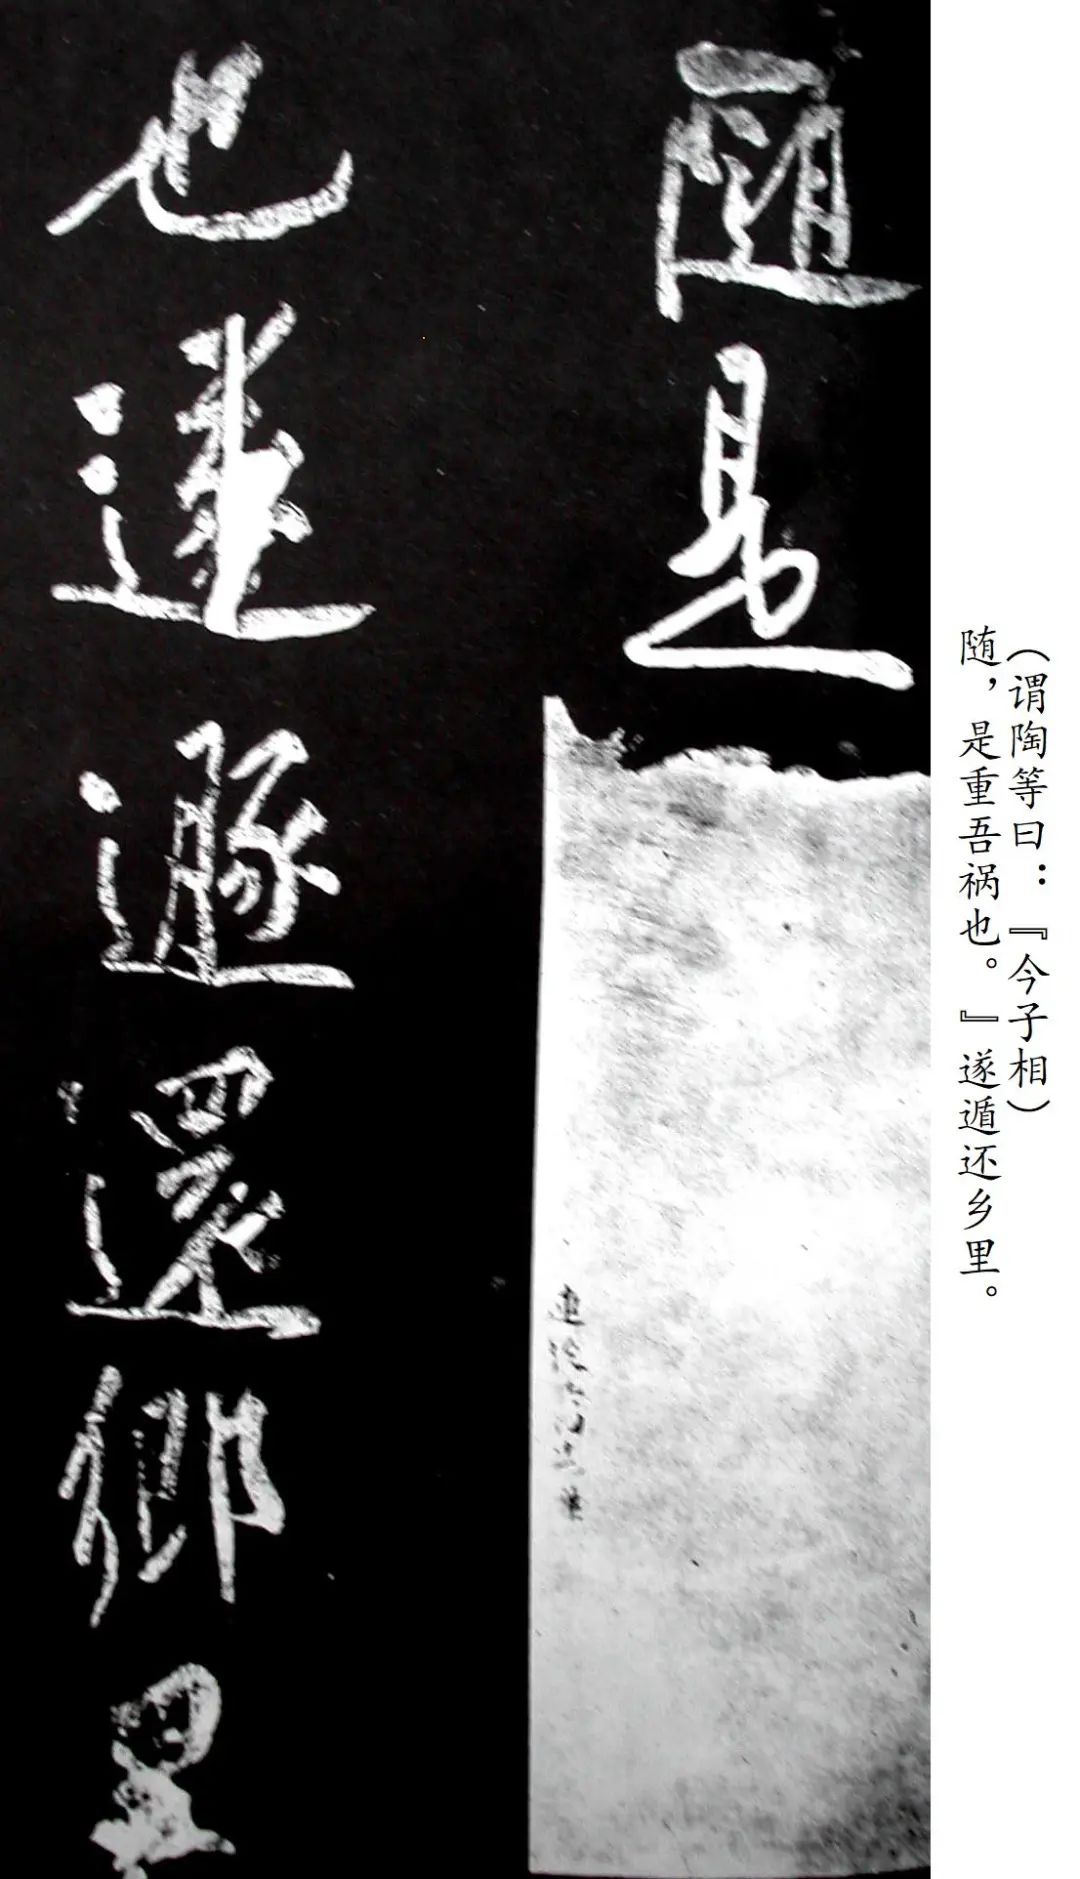 （谓陶等曰：『今子相）
随，是重吾祸也。』遂遁还乡里。
隨是
也遂遯還鄉里